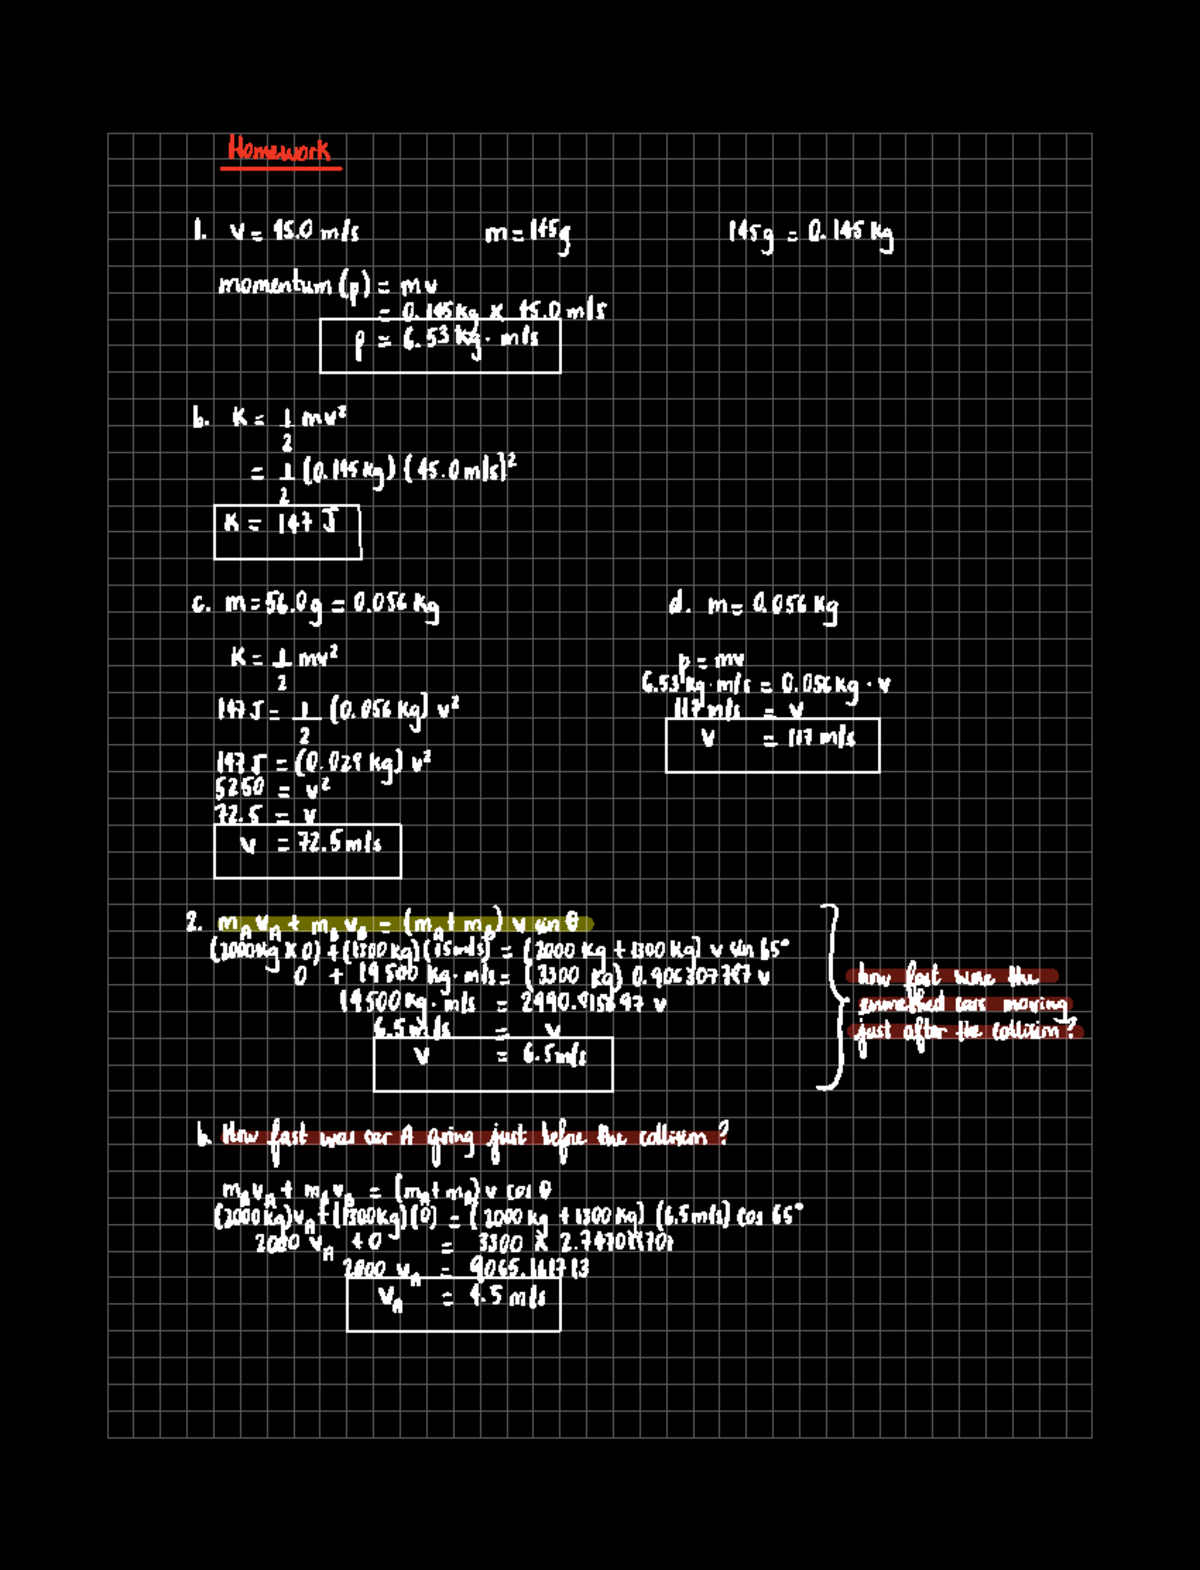 Homework
1. v = 45.0 m/s m = 145g 145g = 0.145 kg
momentum (p) = mv
= 0.145kg x 45.0 m/s
p = 6.53 kg · m/s
b. K = 1/2 mv²
= 1/2 (0.145 kg) (45.0 m/s)²
K = 147 J
c. m = 56.0g = 0.056 kg
K = 1/2 mv²
147 J = 1/2 (0.056 kg) v²
147 J = (0.028 kg) v²
5250 = v²
72.5 = v
v = 72.5 m/s
d. m = 0.056 kg
p = mv
6.53 kg · m/s = 0.056 kg · v
117 m/s = v
v = 117 m/s
2. mA vA + mB vB = (mA + mB) v sin θ
(2000kg x 0) + (1300 kg)(15 m/s) = (2000 kg + 1300 kg) v sin 65°
0 + 19500 kg · m/s = (3300 kg) 0.906307787 v
19500 kg · m/s = 2990.815697 v
6.5 m/s = v
v = 6.5 m/s
how fast were the
enmeshed cars moving
just after the collision?
b. How fast was car A going just before the collision?
mA vA + mB vB = (mA + mB) v cos θ
(2000 kg) vA + (1300kg)(0) = (2000 kg + 1300 kg) (6.5 m/s) cos 65°
2000 vA + 0 = 3300 x
2000 vA =
vA = 4.5 m/s